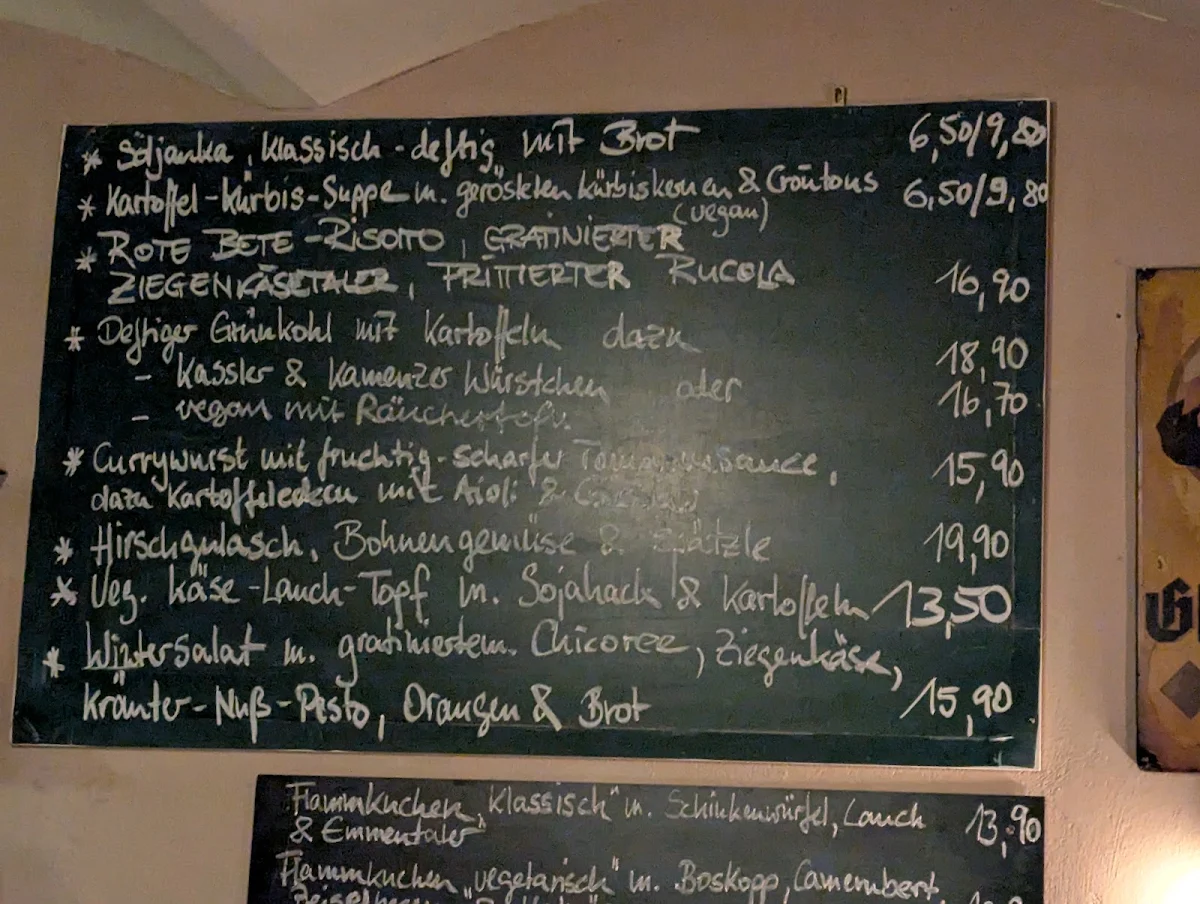 * Soljanka „klassisch-deftig" mit Brot 6,50/9,80
* Kartoffel-Kürbis-Suppe m. gerösteten Kürbiskernen & Croûtons 6,50/9,80
(vegan)
* ROTE BETE-RISOTTO, GRATINIERTER
ZIEGENKÄSETALER, FRITTIERTER RUCOLA 16,90
* Deftiger Grünkohl mit Kartoffeln dazu
- Kassler & Kamenzer Würstchen oder 18,90
- vegan mit Räuchertofu. 16,70
* Currywurst mit fruchtig-scharfer Tomatensauce, 15,90
dazu Kartoffelecken mit Aioli &
* Hirschgulasch, Bohnengemüse & Spätzle 19,90
* Veg. Käse-Lauch-Topf m. Sojahack & Kartoffeln 13,50
* Wintersalat m. gratiniertem Chicoree, Ziegenkäse,
Kräuter-Nuß-Pesto, Orangen & Brot 15,90
Flammkuchen „klassisch" m. Schinkenwürfel, Lauch 13,90
& Emmentaler
Flammkuchen „vegetarisch" m. Boskopp, Camembert,